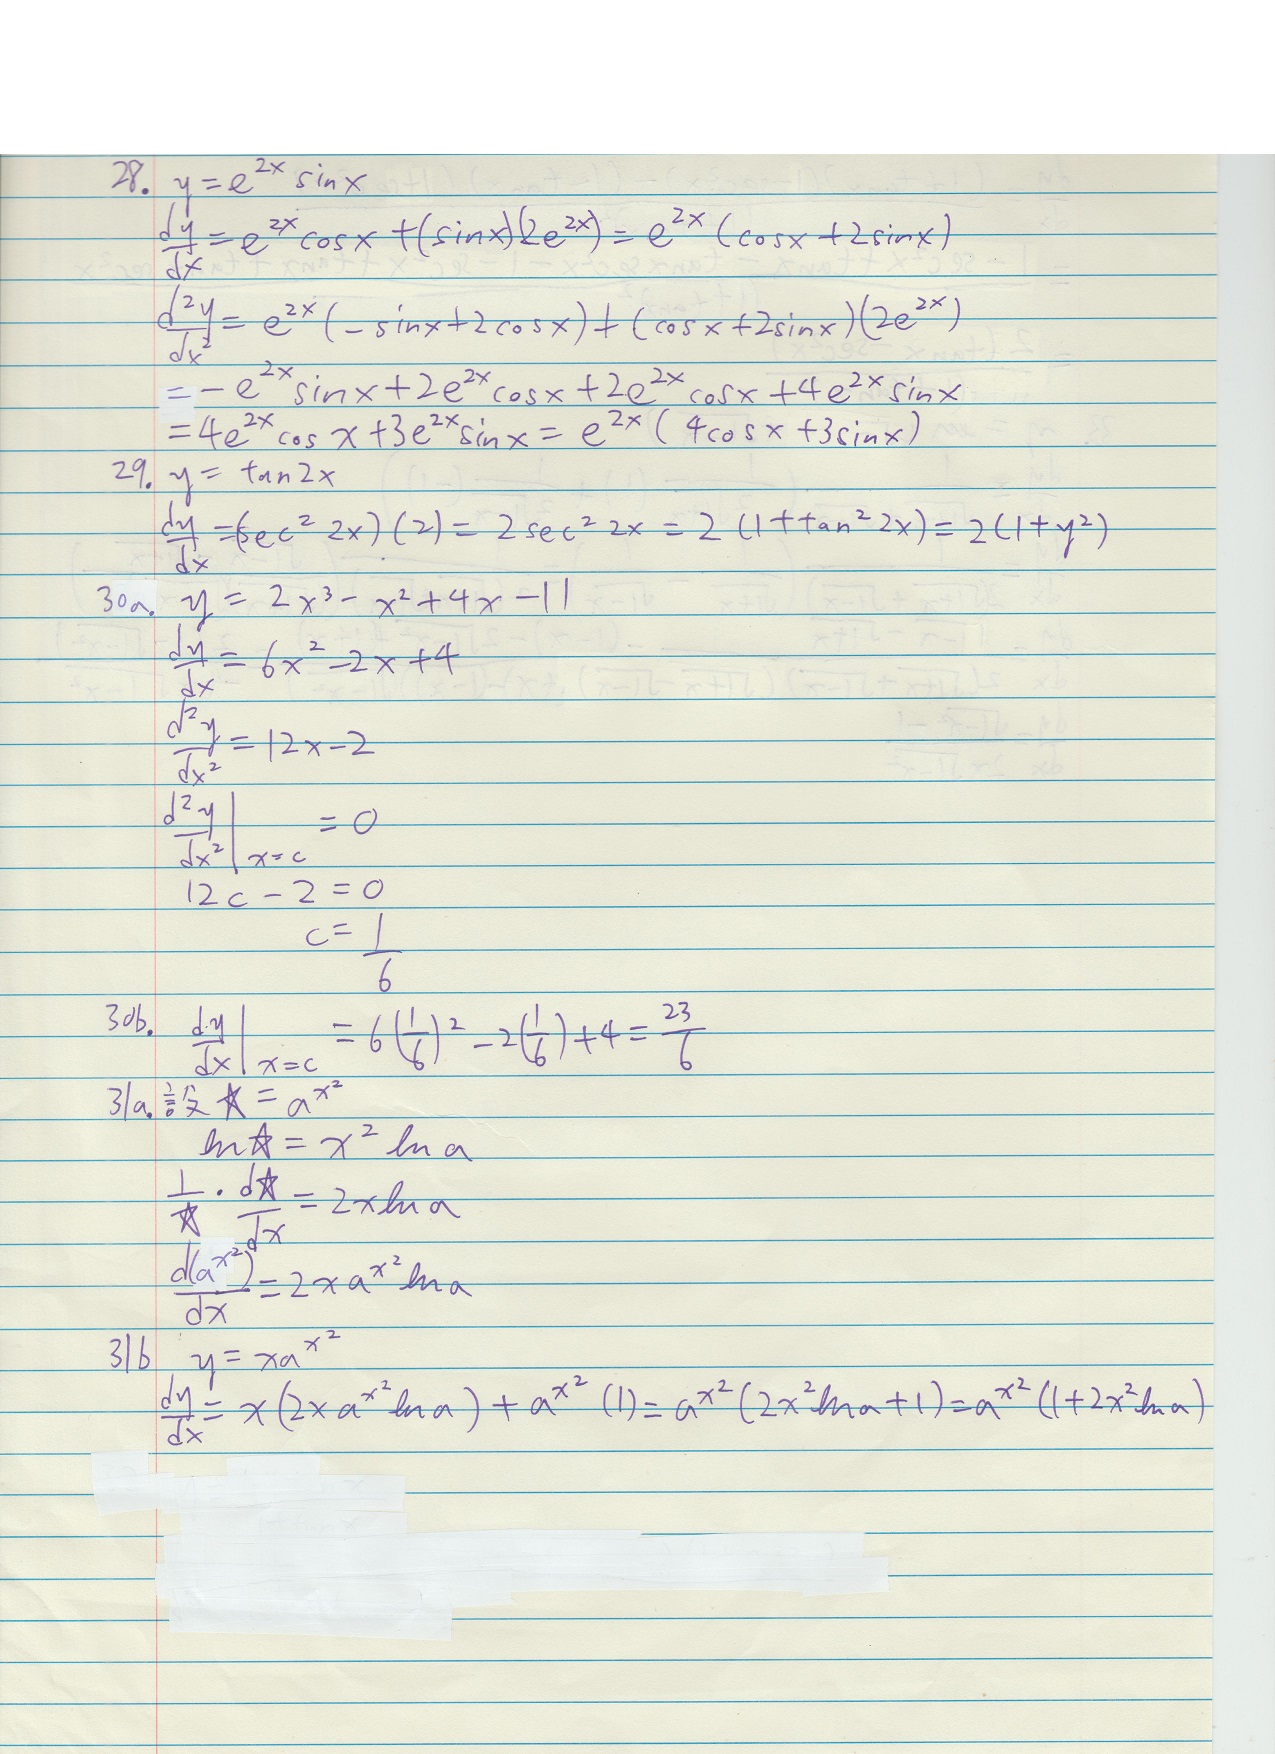 28. y = e^{2x} sin x
dy/dx = e^{2x} cos x + (sin x)(2e^{2x}) = e^{2x} (cos x + 2 sin x)
d²y/dx² = e^{2x} (- sin x + 2 cos x) + (cos x + 2 sin x)(2e^{2x})
= - e^{2x} sin x + 2e^{2x} cos x + 2e^{2x} cos x + 4e^{2x} sin x
= 4e^{2x} cos x + 3e^{2x} sin x = e^{2x} (4cos x + 3sin x)
29. y = tan 2x
dy/dx = (sec² 2x)(2) = 2 sec² 2x = 2 (1 + tan² 2x) = 2(1 + y²)
30a. y = 2x³ - x² + 4x - 11
dy/dx = 6x² - 2x + 4
d²y/dx² = 12x - 2
d²y/dx² | x=c = 0
12c - 2 = 0
c = 1/6
30b. dy/dx | x=c = 6(1/6)² - 2(1/6) + 4 = 23/6
31a. 設 ☆ = a^{x²}
ln ☆ = x² ln a
1/☆ · d☆/dx = 2x ln a
d(a^{x²})/dx = 2x a^{x²} ln a
31b y = xa^{x²}
dy/dx = x (2x a^{x²} ln a) + a^{x²} (1) = a^{x²} (2x² ln a + 1) = a^{x²} (1 + 2x² ln a)